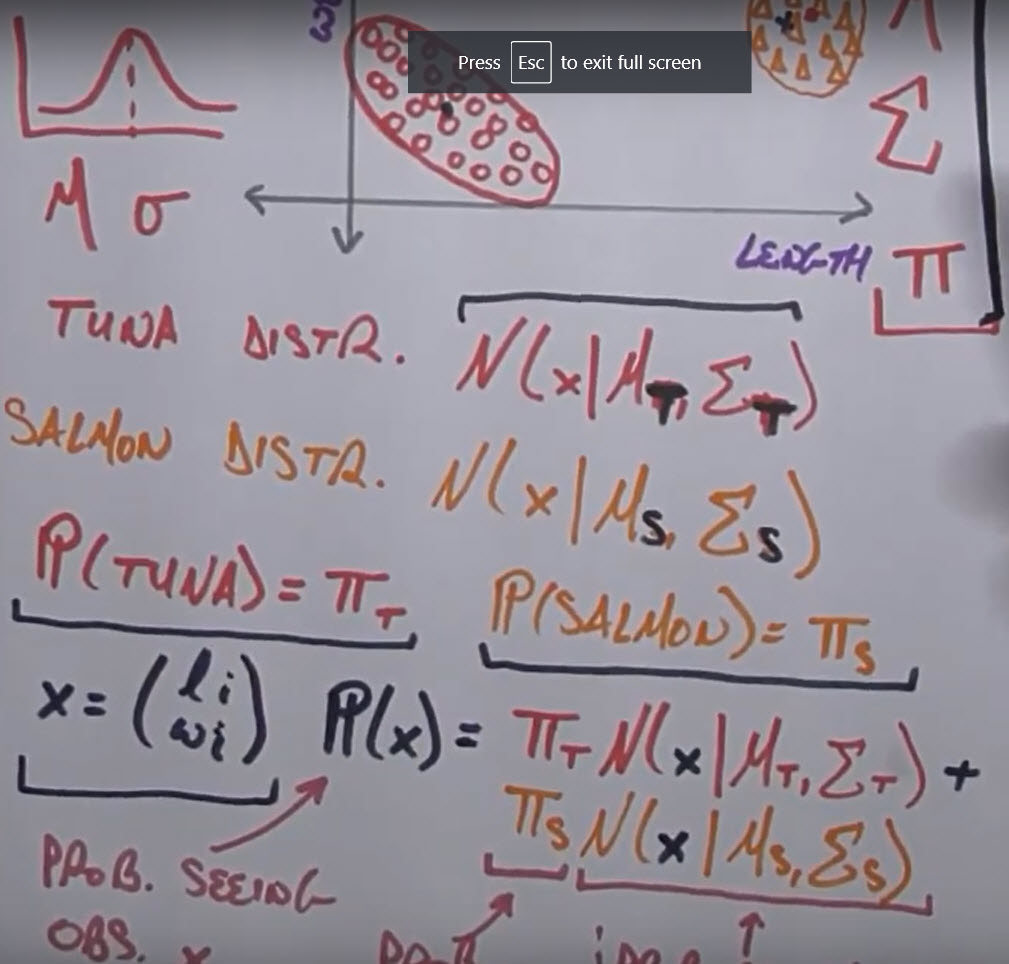 Press Esc to exit full screen
W
Σ
M σ
LENGTH
π
TUNA DISTR. N(x|M_T, Σ_T)
SALMON DISTR. N(x|M_S, Σ_S)
ℙ(TUNA) = π_T
ℙ(SALMON) = π_S
x = (l_i w_i) ℙ(x) = π_T N(x|M_T, Σ_T) +
π_S N(x|M_S, Σ_S)
PROB. SEEING
OBS. x